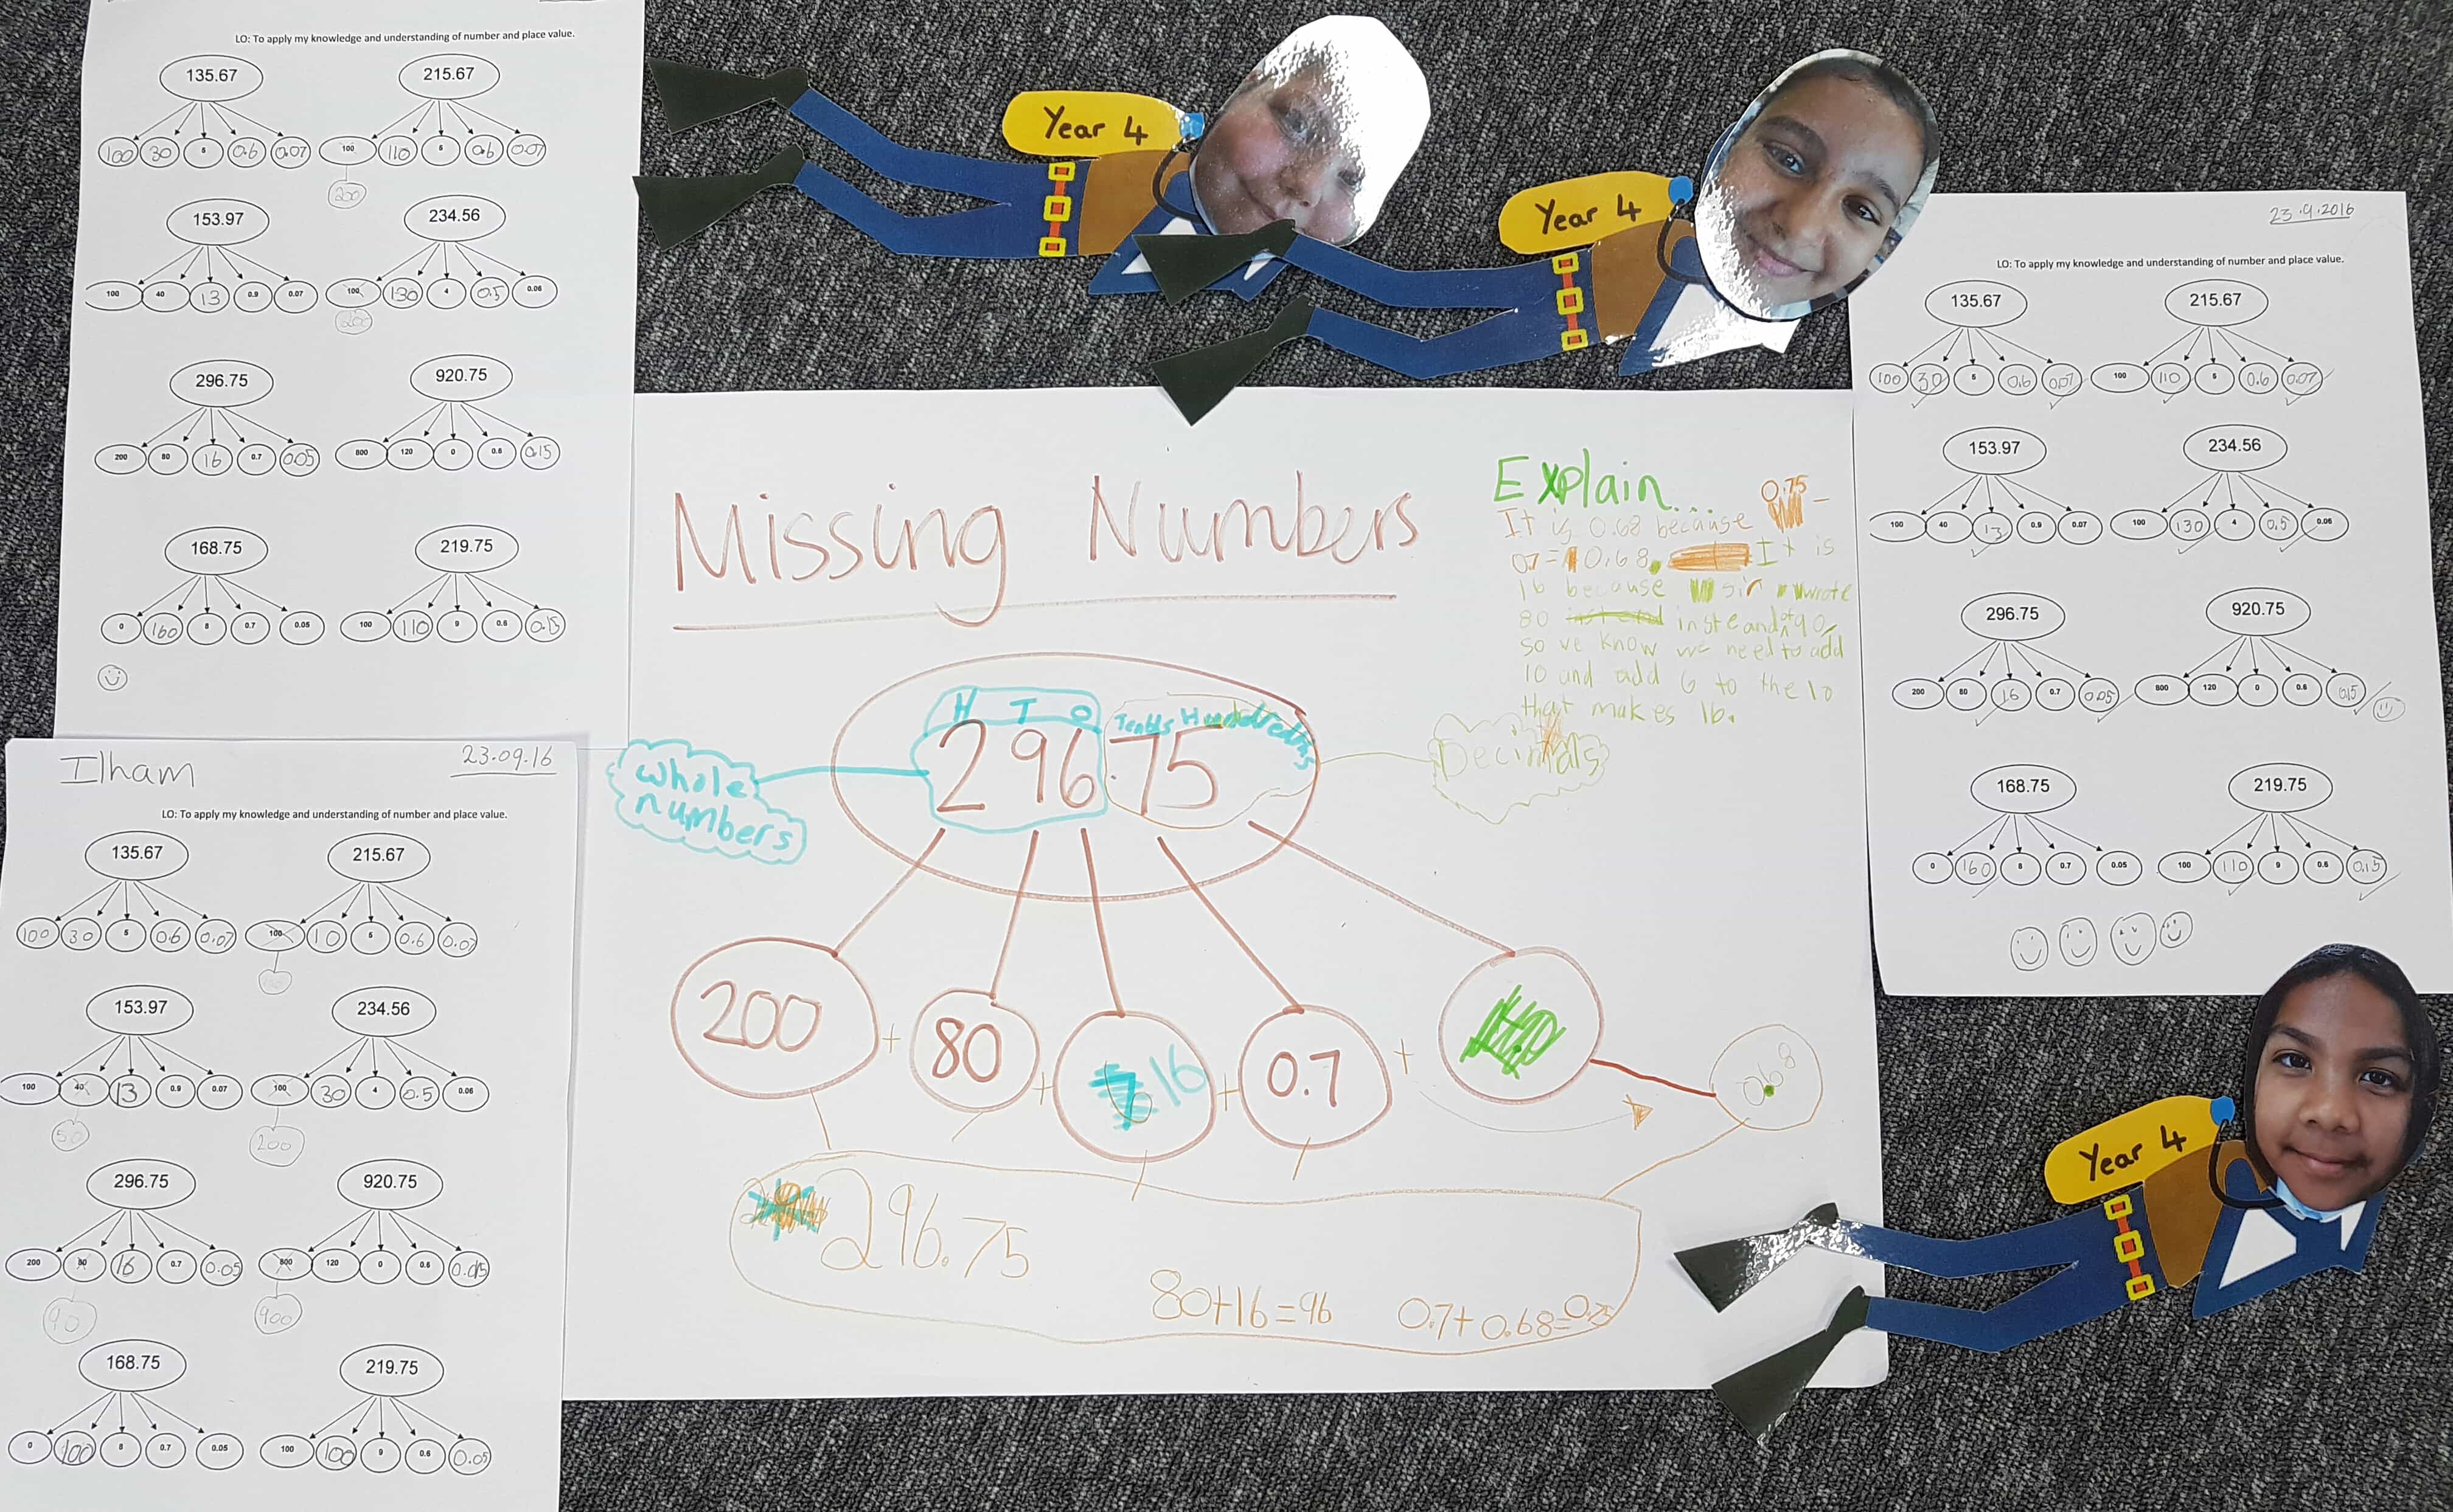 LO: To apply my knowledge and understanding of number and place value.
135.67 215.67
100 30 5 0.6 0.07 100 110 5 0.6 0.07
200
153.97 234.56
100 40 13 0.9 0.07 100 130 4 0.5 0.06
200
296.75 920.75
200 80 16 0.7 0.05 800 120 0 0.6 0.15
168.75 219.75
0 160 8 0.7 0.05 100 110 9 0.6 0.15
Ilham 23.09.16
LO: To apply my knowledge and understanding of number and place value.
135.67 215.67
100 30 5 0.6 0.07 100 10 5 0.6 0.07
153.97 234.56
100 40 13 0.9 0.07 100 30 4 0.5 0.06
50 200
296.75 920.75
200 80 16 0.7 0.05 800 120 0 0.6
90 900
168.75 219.75
0 100 8 0.7 0.05 100 100 9 0.6 0.05
Year 4
Year 4
Missing Numbers
Explain...
It is 0.68 because 0.75 -
07= 0.68. It is
16 because sir wrote
80 insteand of 90
so we know we need to add
10 and add 6 to the 10
that makes 16.
H T O Tenths Hundredths
296.75
whole
numbers
Decimals
200 + 80 + 16 + 0.7 + 0.68
296.75
80+16=96 0.7+0.68=0.75
23.9.2016
LO: To apply my knowledge and understanding of number and place value.
135.67 215.67
100 30 5 0.6 0.07 100 110 5 0.6 0.07
153.97 234.56
100 40 13 0.9 0.07 100 130 4 0.5 0.06
296.75 920.75
200 80 16 0.7 0.05 800 120 0 0.6 0.15
168.75 219.75
0 160 8 0.7 0.05 100 110 9 0.6 0.15
Year 4